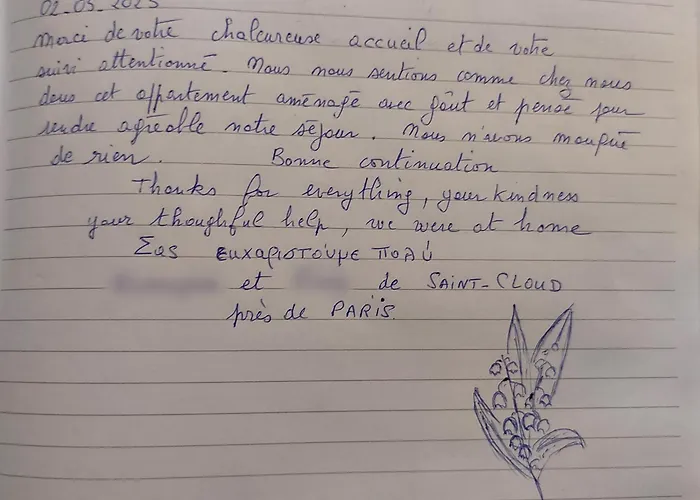 02.05.2023
Merci de votre chaleureuse accueil et de votre
suivi attentionné. Nous nous sentions comme chez nous
dans cet appartement aménagé avec goût et pensé pour
rendre agréable notre séjour. Nous n'avons manqué
de rien. Bonne continuation
Thanks for everything, your kindness
your thoughful help, we were at home
Σας ευχαριστούμε πολύ
et de SAINT-CLOUD
près de PARIS.